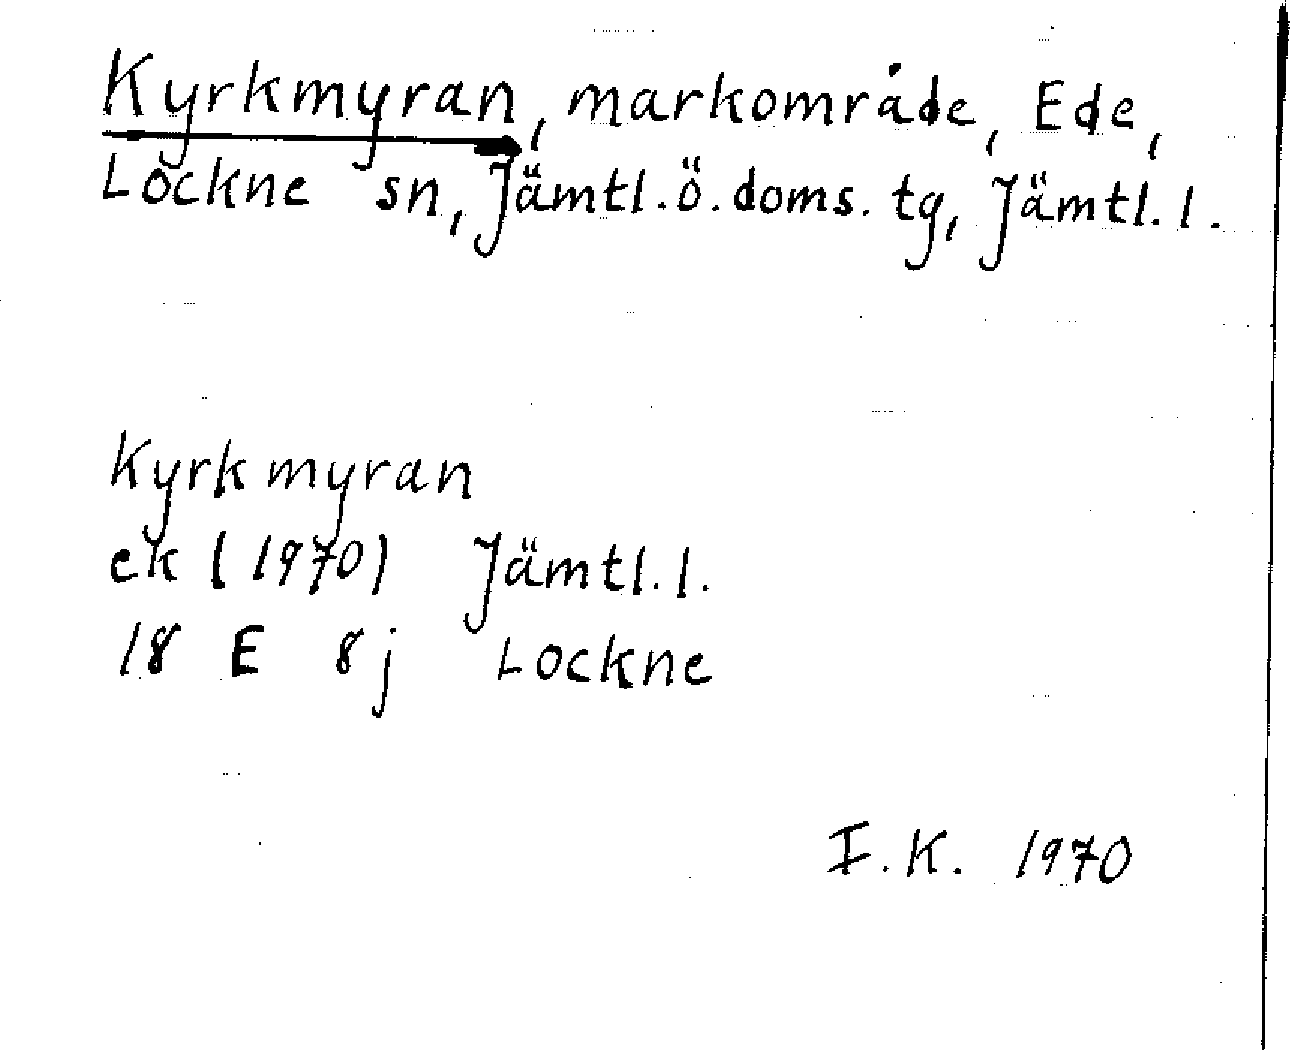 Kyrkmyran, markområde, Ede,
Lockne sn, Jämtl.ö.doms.tg, Jämtl.l.
Kyrkmyran
ek (1970) Jämtl.l.
18 E 8j Lockne
I.K. 1970